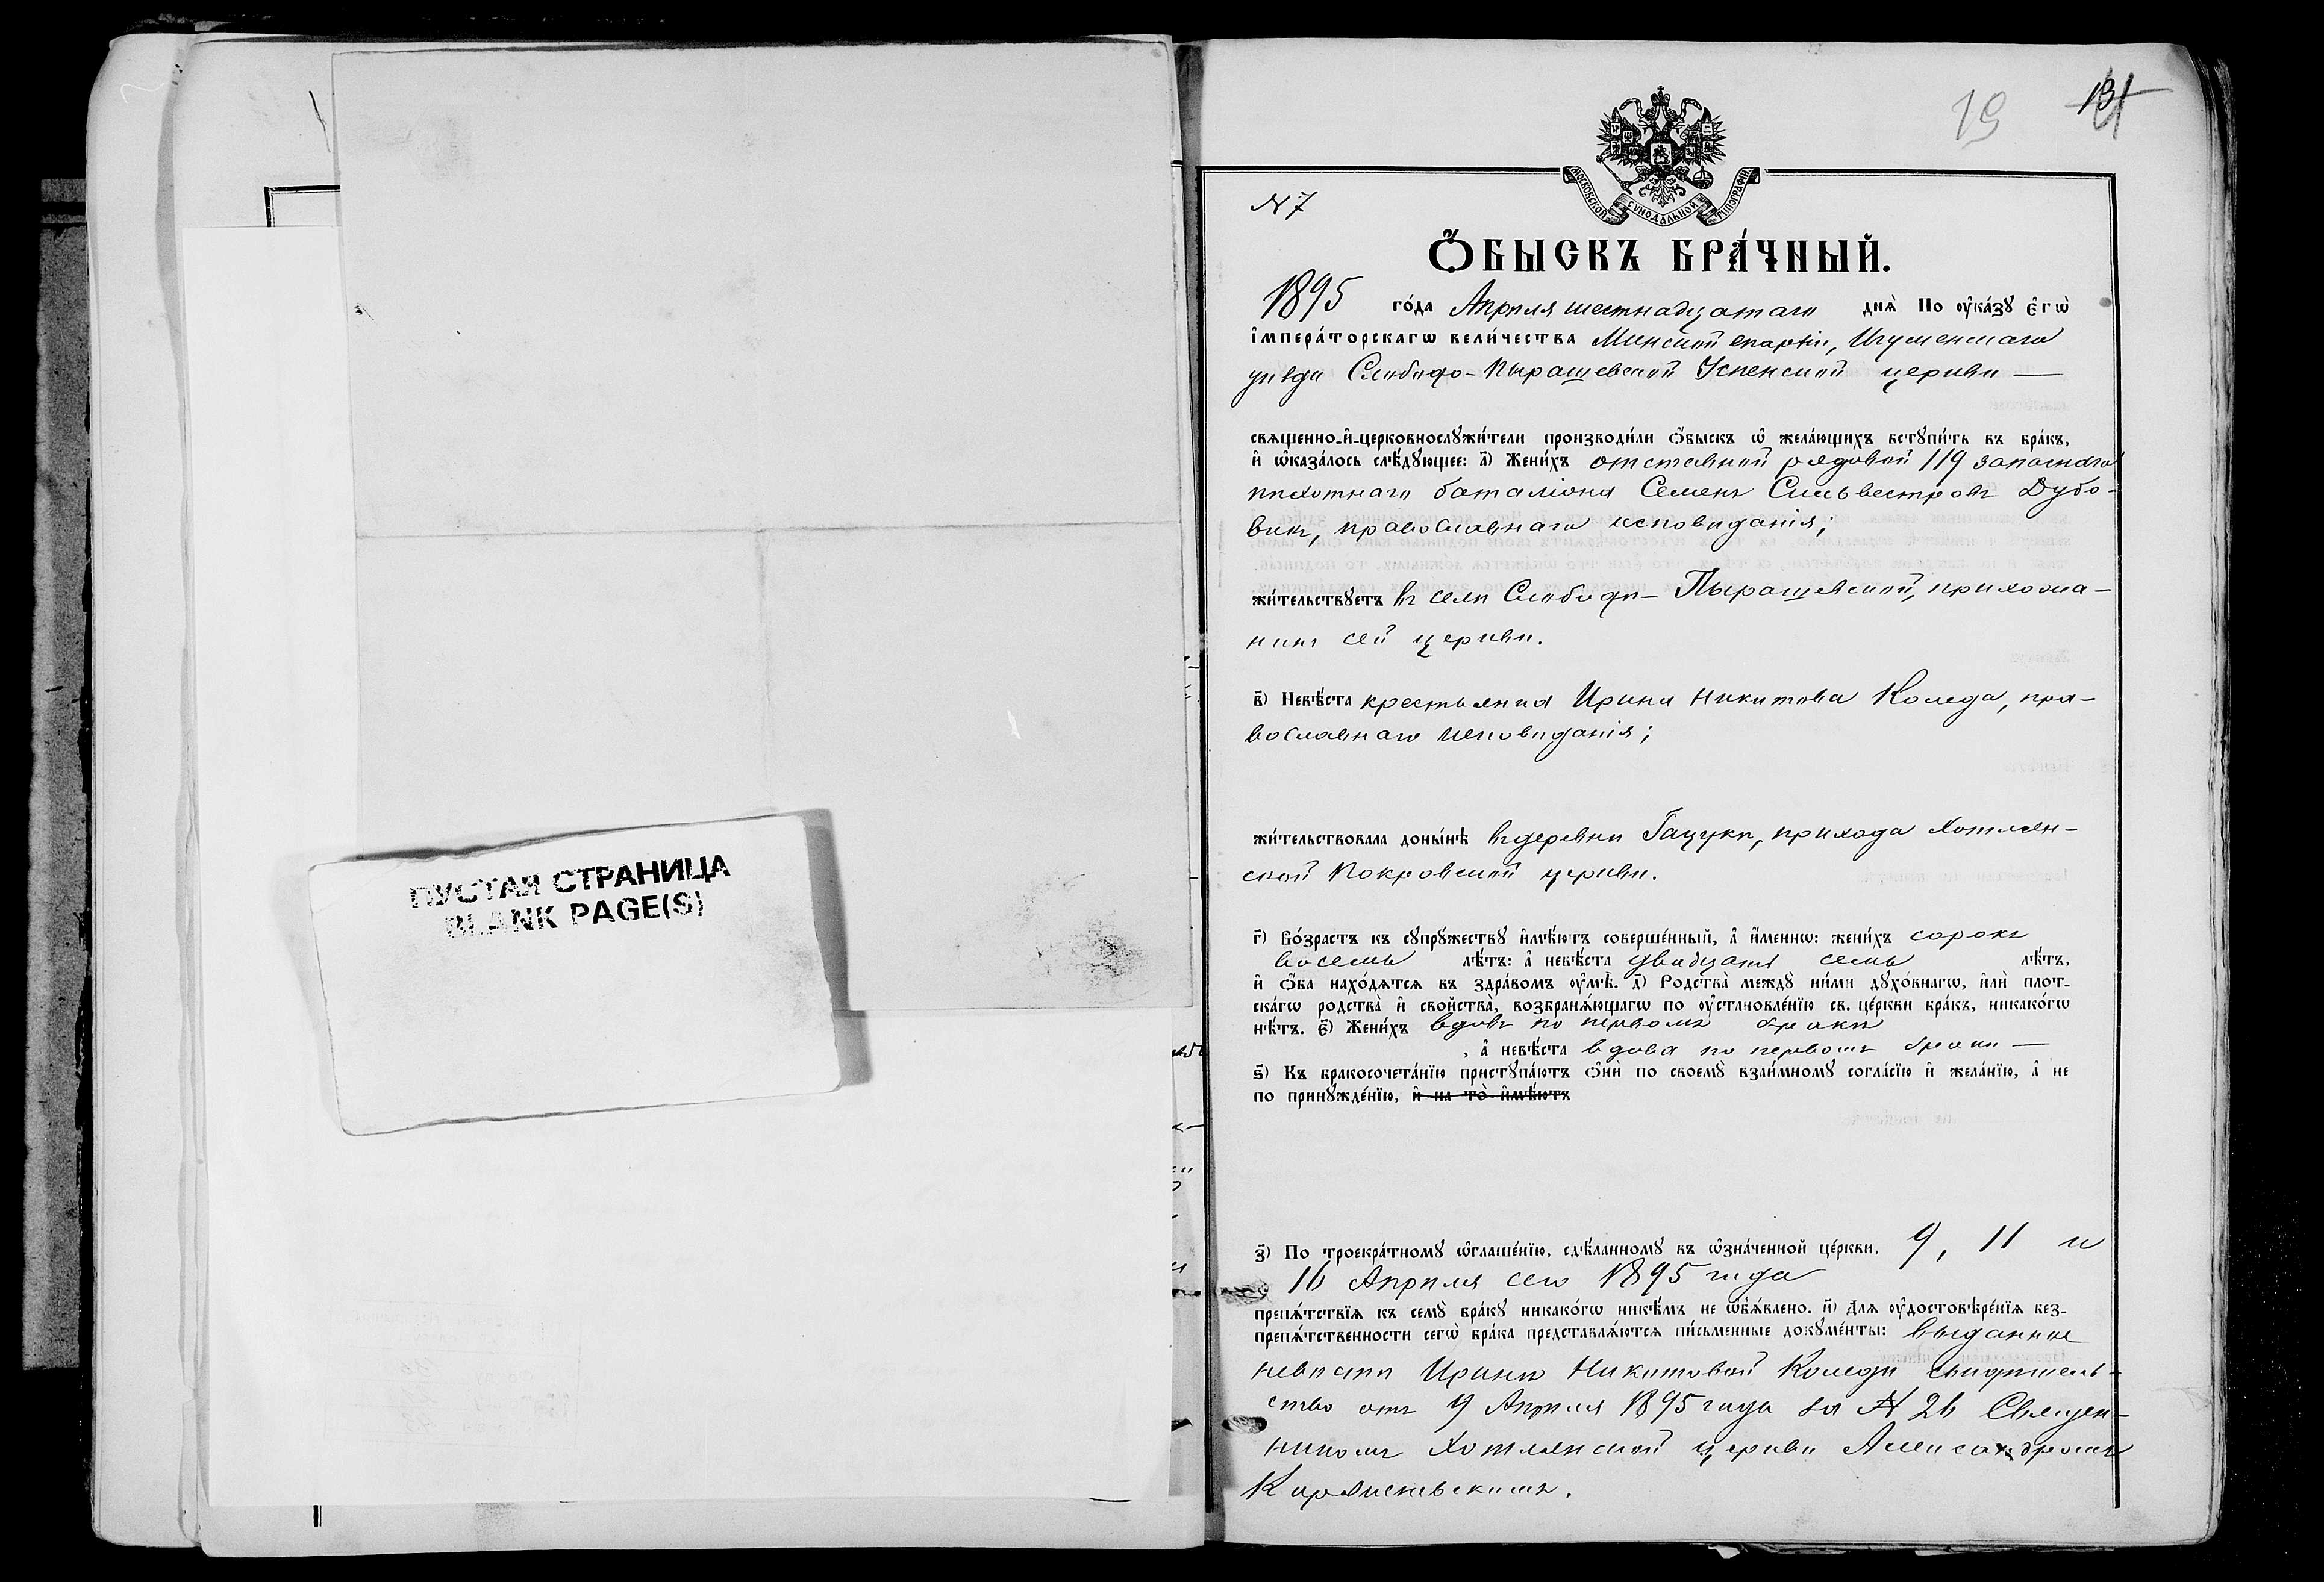 ПУСТАЯ СТРАНИЦА
BLANK PAGE(S)
19 131
МОСКОВСКОЙ СѴНОДАЛЬНОЙ ТИПОГРАФІИ
N 7
Ѻ҆БЫСКЪ БРА́ЧНЫЙ.
1895 го́да Апрѣля шестнадцатаго днѧ̀ По ᲂу҆ка́зꙋ є҆гѡ̀
і҆мпера́торскагѡ вели́чества Минской епархіи, Игуменскаго
уѣзда Слободо-Пырашевской Успенской церкви —
свѧщенно-и҆-церковнослꙋжи́тели производи́ли ѻ҆́быскъ ѡ҆ жела́ющихъ встꙋпи́ть въ бра́къ,
и҆ ѡ҆каза́лось слѣ́дꙋющее: а҃) Жени́хъ отставной рядовой 119 запаснаго
пѣхотнаго баталіона Семенъ Сильвестровъ Дубо-
викъ, православнаго исповѣданія;
жи́тельствꙋетъ въ селѣ Слободѣ-Пырашевской, прихожа-
нинъ сей церкви.
в҃) Невѣ́ста крестьянка Ирина Никитова Коледа, пра-
вославнаго исповѣданія;
жи́тельствовала доны́нѣ въ деревнѣ Гацукѣ, прихода Хотлян-
ской Покровской церкви.
г҃) Во́зрастъ къ сꙋпрꙋ́жествꙋ и҆мѣ́ютъ соверше́нный, а҆ и҆́меннѡ: жени́хъ сорокъ
восемь лѣ́тъ: а҆ невѣ́ста двадцать семь лѣ́тъ,
и҆ ѻ҆́ба нахо́дѧтсѧ въ здра́вомъ ᲂу҆мѣ̀. д҃) Родства̀ междꙋ̀ ни́ми дꙋхо́внагѡ, и҆лѝ плот-
ска́гѡ родства̀ и҆ сво́йства̀, возбранѧ́ющагѡ по ᲂу҆становле́нїю св. це́ркви бра́къ, никако́гѡ
нѣ́тъ. є҃) Жени́хъ вдовъ по первомъ бракѣ
, а҆ невѣ́ста вдова по первомъ бракѣ —
ѕ҃) Къ бракосочета́нїю пристꙋпа́ютъ ѻ҆нѝ по своемꙋ̀ взаи́мномꙋ согла́сїю и҆ жела́нїю, а҆ не
по принꙋжде́нїю, и҆ на то̀ и҆мѣ́ютъ
з҃) По троекра́тномꙋ ѡ҆глаше́нїю, сдѣ́ланномꙋ въ ѡ҆зна́ченной це́ркви, 9, 11 и
16 Апрѣля сего 1895 года
препѧ́тствїѧ къ семꙋ̀ бра́кꙋ никако́гѡ никѣ́мъ не ѡ҆б̾ѧ́влено. и҃) Длѧ ᲂу҆достовѣре́нїѧ без-
препѧ́тственности сегѡ̀ бра́ка представлѧ́ютсѧ пи́сьменные докꙋме́нты: выданное
невѣстѣ Иринѣ Никитовой Коледѣ свидѣтель-
ство отъ 9 Апрѣля 1895 года за N 26 Священ-
никомъ Хотлянской церкви Александромъ